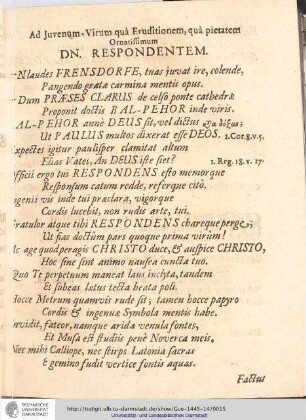 Ad Juvenum-Virum quà Eruditionem, quà pietatem
Ornatissimum
DN. RESPONDENTEM.
Nlaudes FRENSDORFE, tuas juvat ire, colende,
Pangendo gratæ carmina mentis opus.
Dum PRÆSES CLARUS de celso ponte cathedræ
Proponit doctis BAL-PEHOR inde viris.
AL-PEHOR annè DEUS sit, vel dictus
Ut PAULUS multos dixerat esse DEOS. 1.Cor.8.v.5.
xpectes igitur paulisper clamitat altum
Elias Vates, An DEUS iste siet? 1. Reg. 18. v. 27.
fficii ergo tui RESPONDENS esto memorque
Responsum catum redde, referque citò.
ngenii vis inde tui præclara, vigorque
Cordis lucebit, non rudis arte, tui.
ratulor atque tibi RESPONDENS chareque perge,
Ut fias doctûm pars quoque prima virûm!
ic age quod peragis CHRISTO duce, & auspice CHRISTO,
Hoc sine sint animo nausea cuncta tuo.
Quo Te perpetuum maneat laus inclyta, tandem
Et subeas lætus tecta beata poli.
Hocce Metrum quamvis rude sit; tamen hocce papyro
Cordis & ingenuæ Symbola mentis habe.
nvidit, fateor, namque arida venula fontes,
Et Musa est studiis penè Noverca meis.
Nec mihi Calliope, nec stirps Latonia sacras
E gemino fudit vertice fontis aquas.
Factus
TECHNISCHE
UNIVERSITÄT
DARMSTADT
http://tudigit.ulb.tu-darmstadt.de/show/Gue-1445-14/0015
Universitäts- und Landesbibliothek Darmstadt